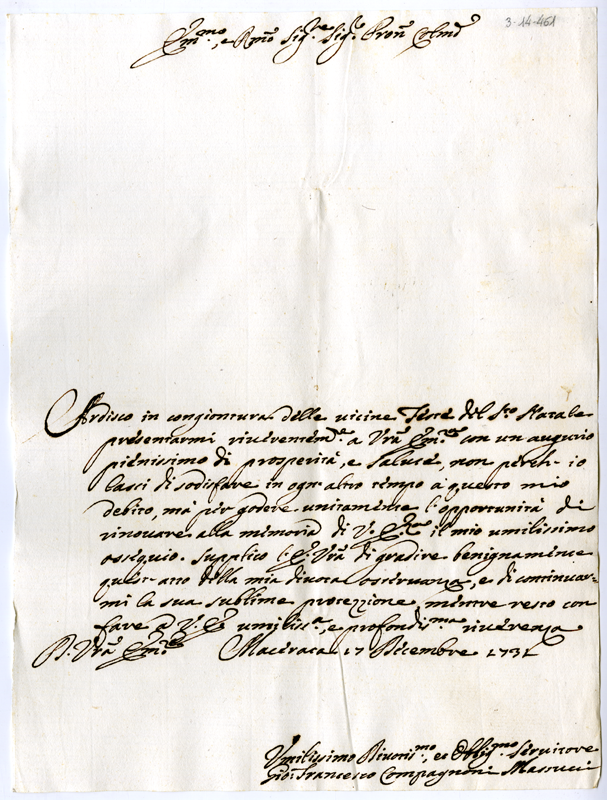 3-14-461
Em.mo, e Rmo Sig.re Sig.e Pron Colmo
Ardisco in congiontura delle vicine Feste del S.to Natale
presentarmi riverentem.te a Vra Em.za con un augurio
pienissimo di prosperità, e salute, non perche io
lasci di sodisfare in ogn' altro tempo à questo mio
debito, mà per godere unitamente l'opportunità di
rinovare alla memoria di V. E.za il mio umilissimo
ossequio. Supplico l'E. Vra di gradire benignamente
quest' atto della mia divota osservanza, e di continuar-
mi la sua sublime protezzione, mentre resto con
fare a V. E. umiliss.a, e profondis.ma riverenza
D. Vra Em.za Macerata 17 Dicembre 1731
Umilissimo Divotis.mo, et Oblig.mo Servitore
Gio: Francesco Compagnoni Marucci